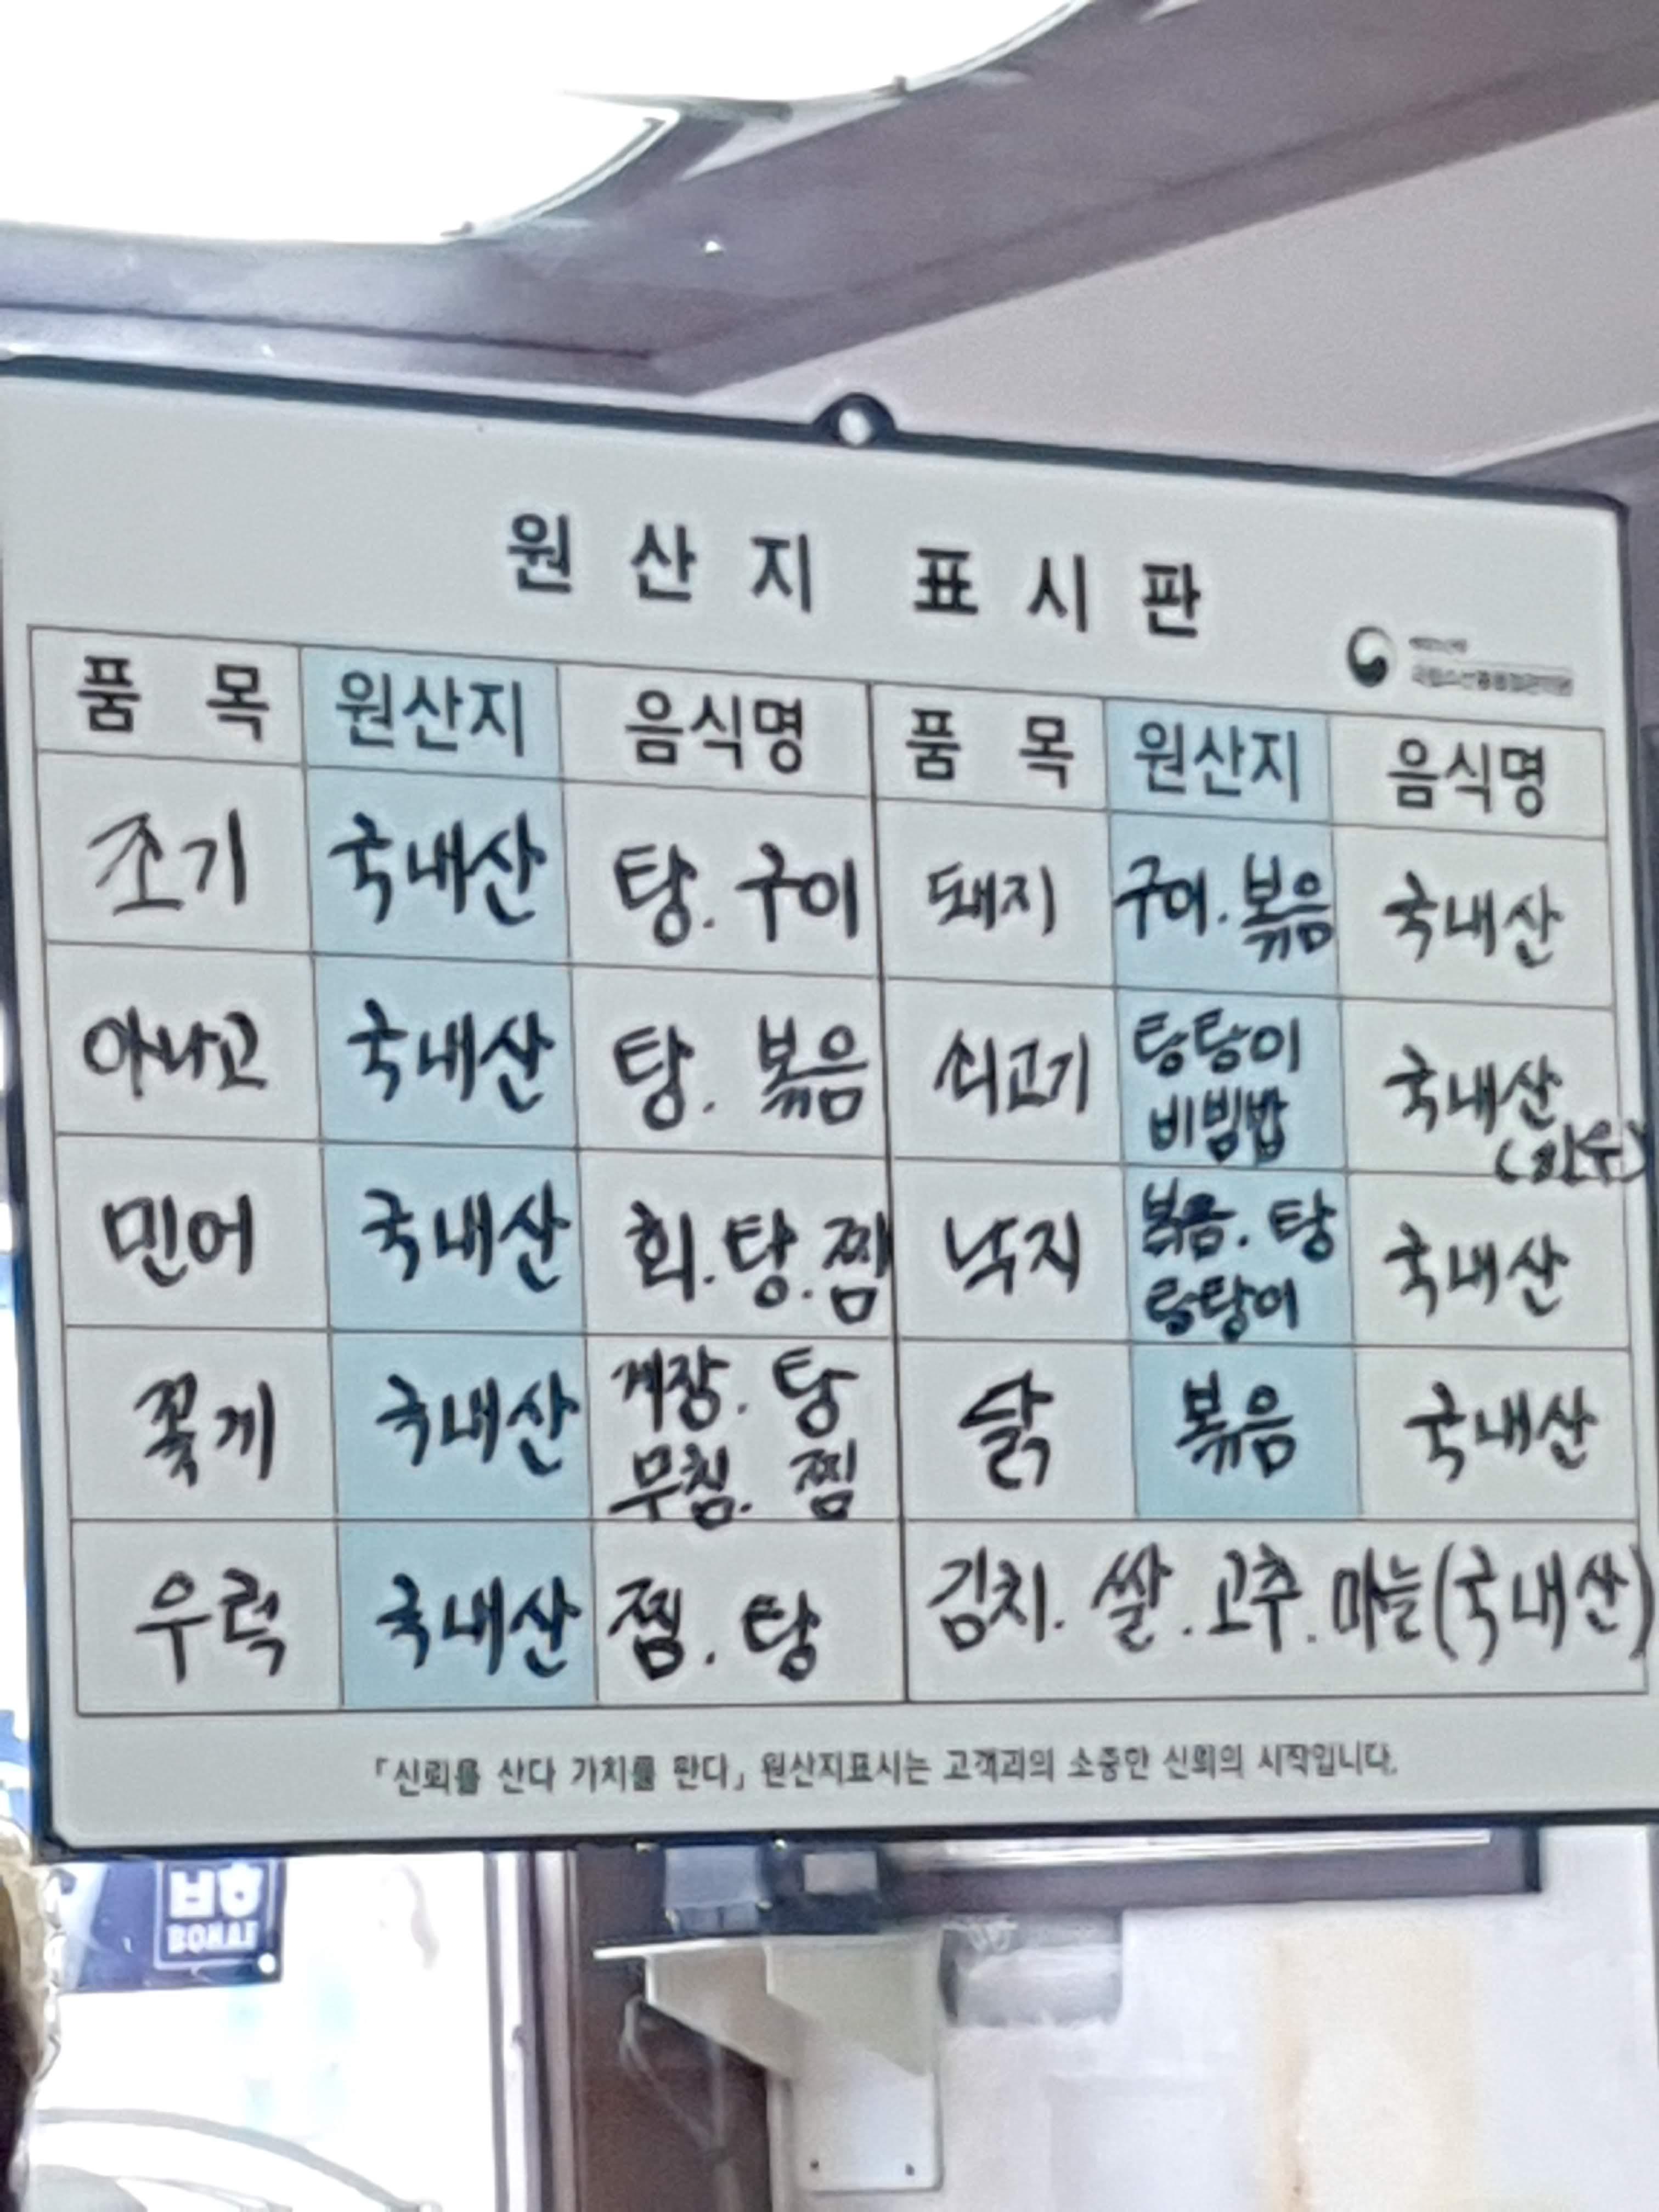 원산지 표시판
품목 원산지 음식명 품목 원산지 음식명
조기 국내산 탕. 구이 돼지 구이. 볶음 국내산
아나고 국내산 탕. 볶음 쇠고기 탕탕이 비빔밥 국내산
민어 국내산 회. 탕. 찜 낙지 볶음. 탕 탕탕이 국내산
꽃게 국내산 게장. 탕 무침. 찜 닭 볶음 국내산
우럭 국내산 찜. 탕 김치. 쌀. 고추. 마늘(국내산)
「신뢰를 산다 가치를 판다」 원산지표시는 고객과의 소중한 신뢰의 시작입니다.